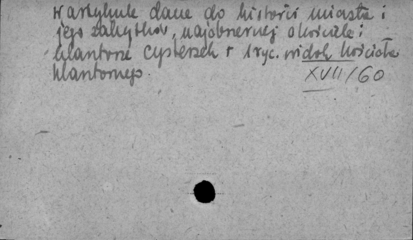 W artykule dane do historii miasta i
jego zabytków, najobszerniej o kościele i
klasztorze Cysterek + 1 ryc. widok kościoła
klasztornego.
XVII/60